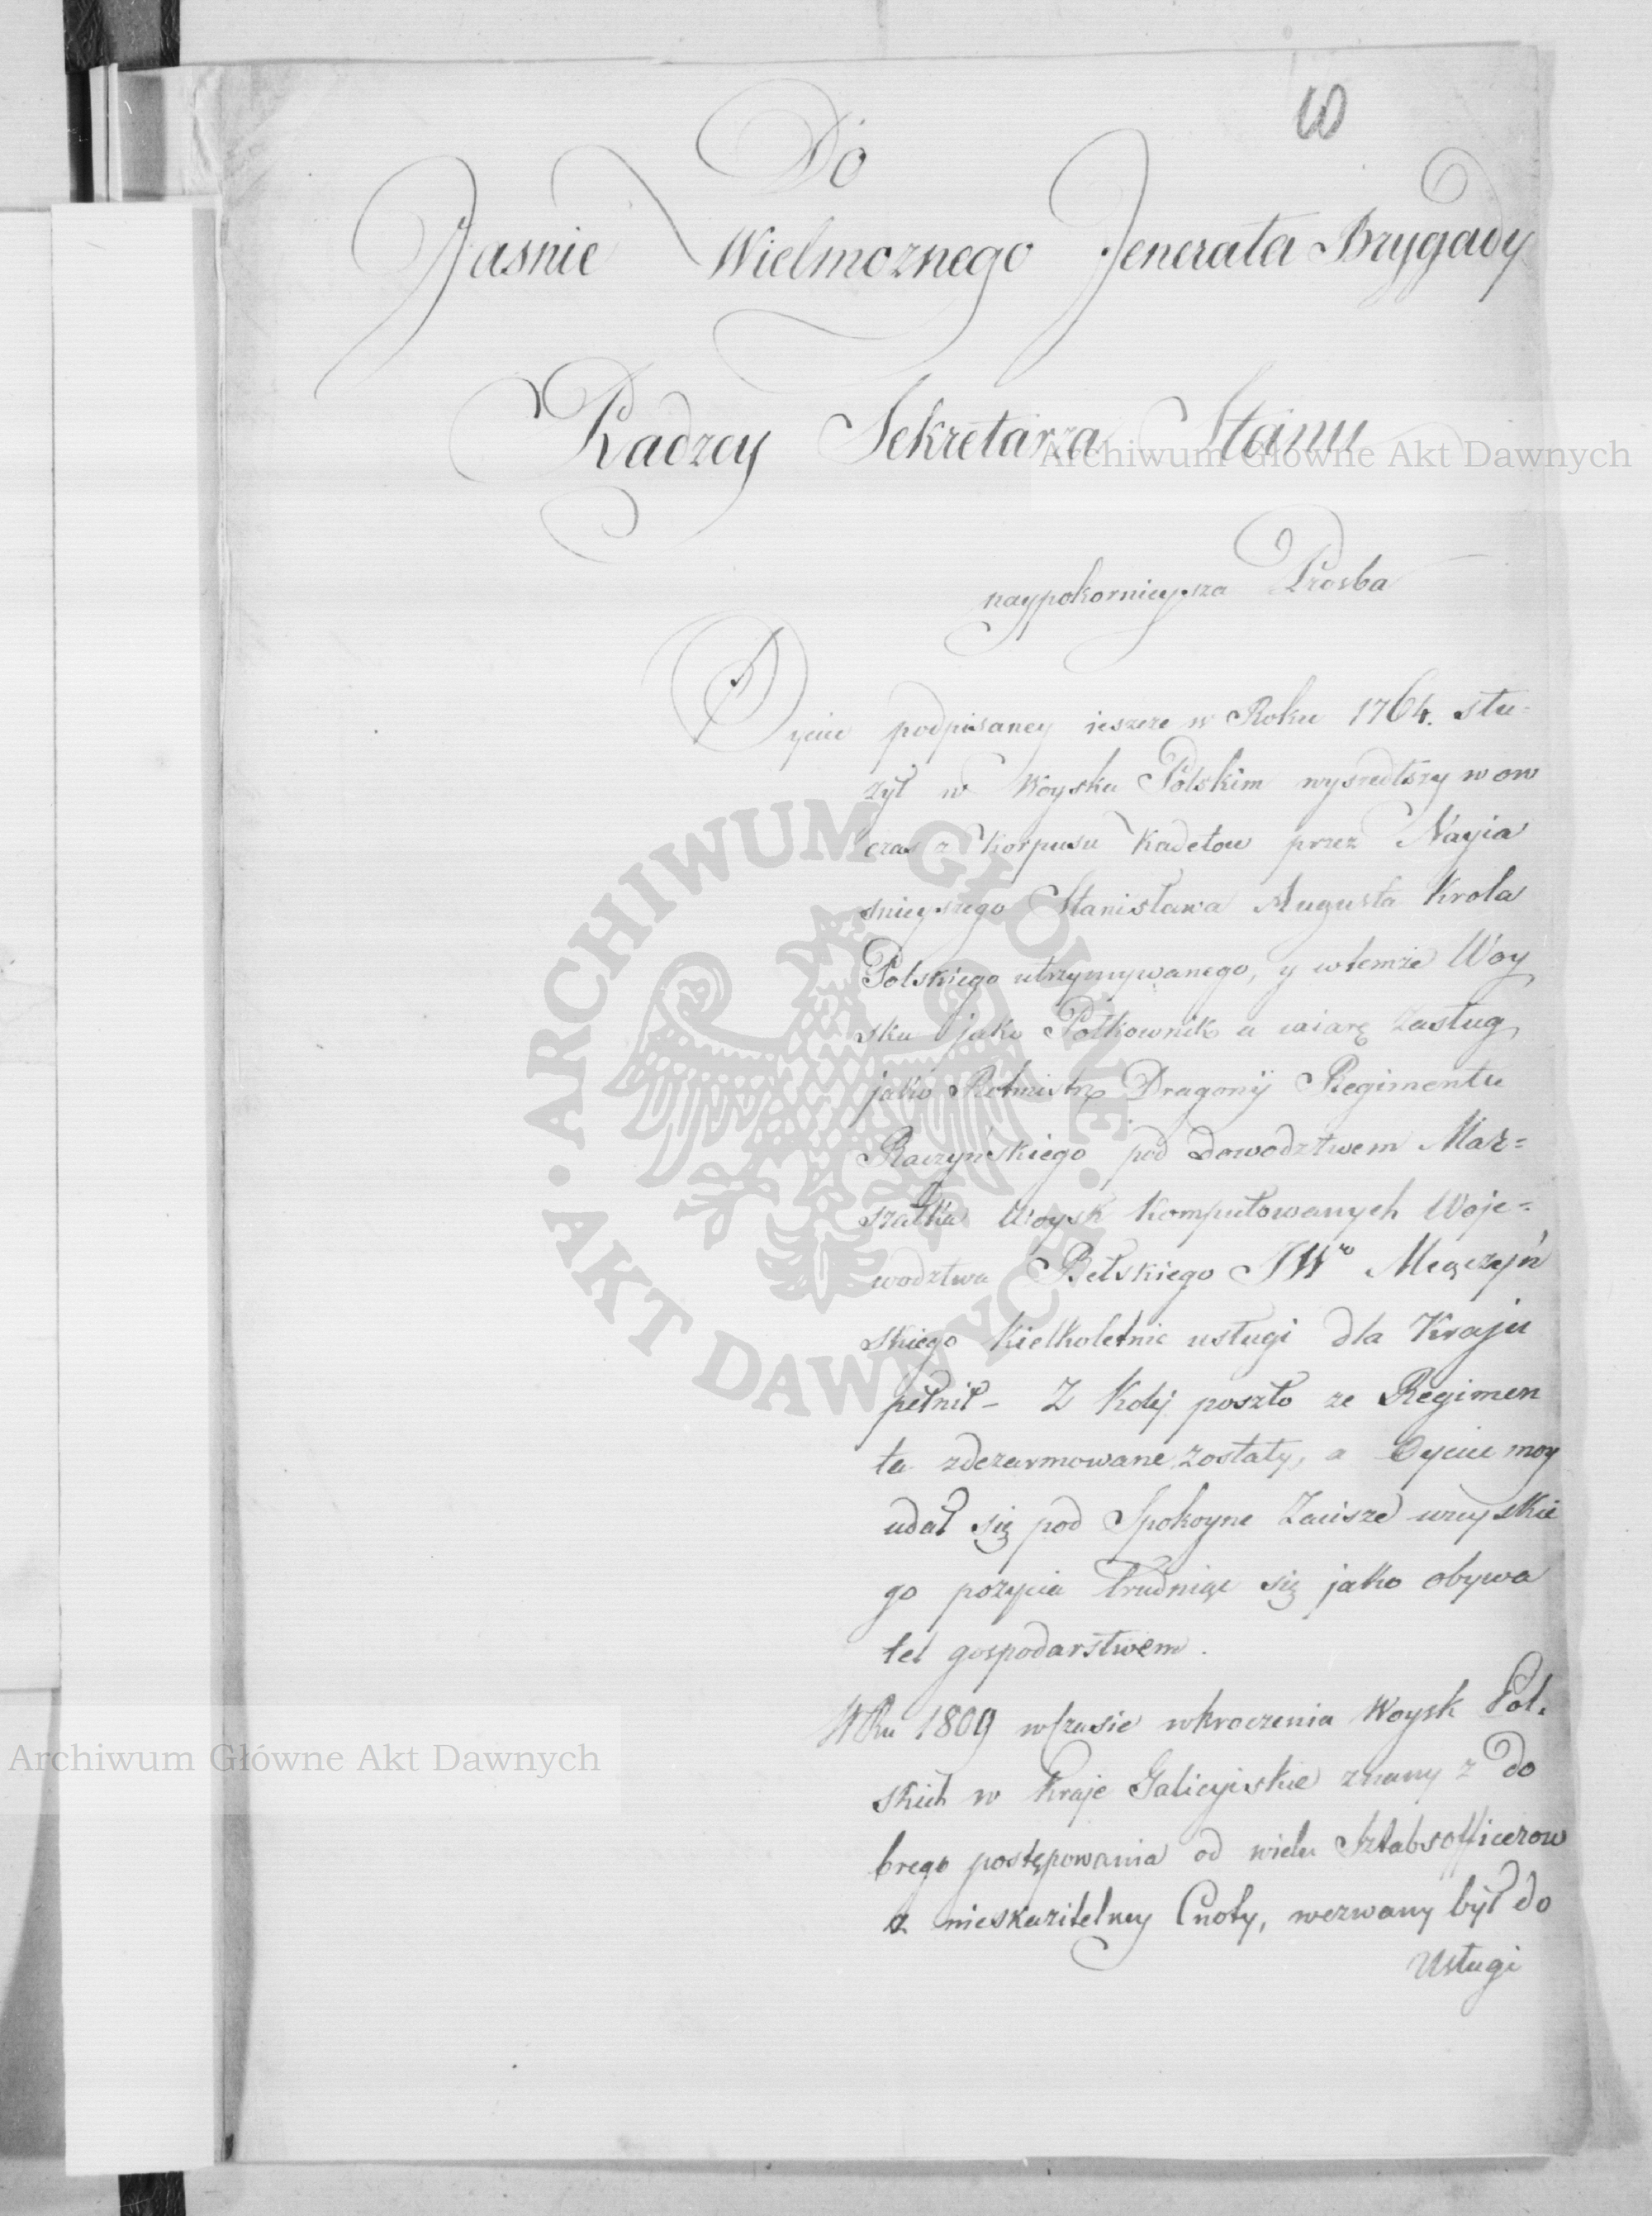 Do
Jasnie Wielmoznego Jenerała Brygady
Radzcy Sekretarza Stanu
naypokornieysza Prosba
Oyciec podpisaney ieszcze w Roku 1764. słu-
żył w Woysku Polskim wyszedłszy w ow
czas z Korpusu Kadetow przez Nayia
snieyszego Stanisława Augusta Krola
Polskiego utrzymywanego, y w temże Woy
sku jako Połkownik a wiarę zasług
jako Rotmistrz Dragonij Regimentu
Raczyńskiego pod Dowodztwem Mar=
szałka Woysk Komputowanych Woje=
wodztwa Bełskiego JWo Męczyń
skiego kielkoletnie usługi dla Kraju
pełnił – Z Kolej poszło ze Regimen
ta zdezarmowane zostały, a Oyciec moy
udał się pod Spokoyne Zacisze wieyskie
go pożycia trudniąc się jako obywa
tel gospodarstwem.
W Ru 1809 w Czasie wkroczenia Woysk Pol.
skich w Kraje Galicyiskie znany z do
brego postępowania od wielu Sztabsofficerow
a nieskazitelney Cnoty, wezwany był do
Usługi
Archiwum Główne Akt Dawnych
Archiwum Główne Akt Dawnych
· ARCHIWUM GŁÓWNE · AKT DAWNYCH